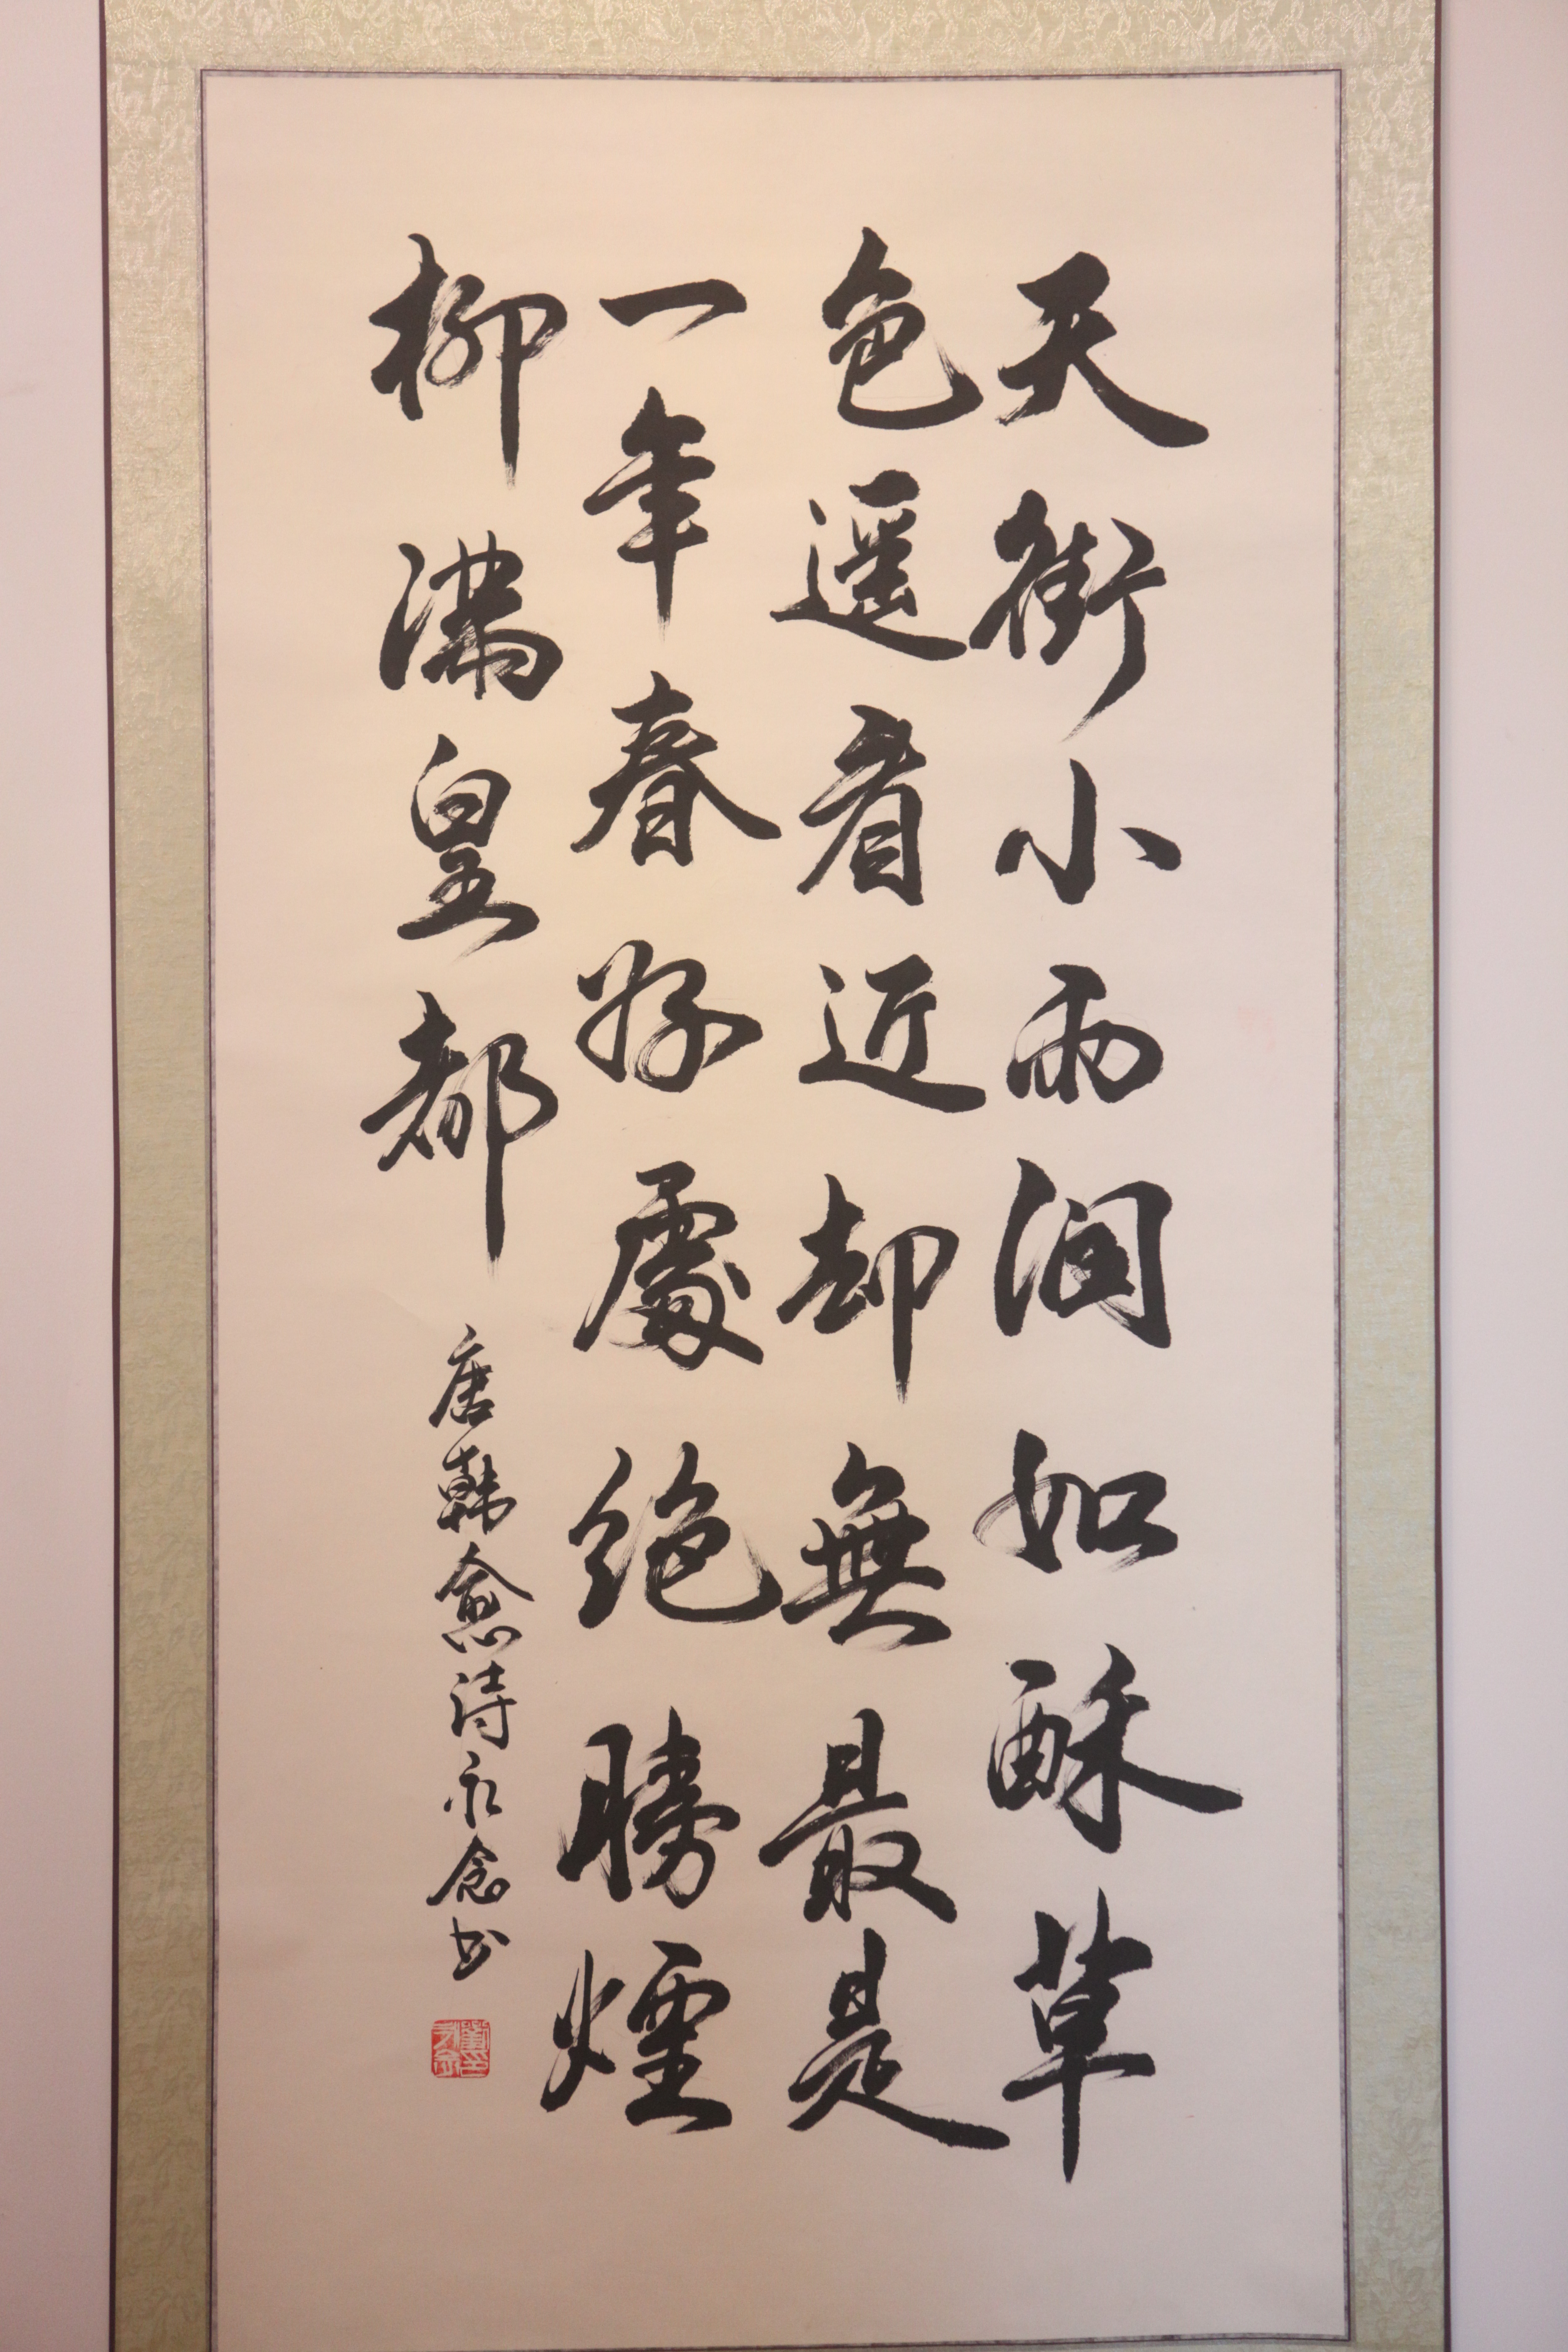 天街小雨润如酥草
色遥看近却無最是
一年春好處絕勝煙
柳满皇都
唐韩愈诗永念书